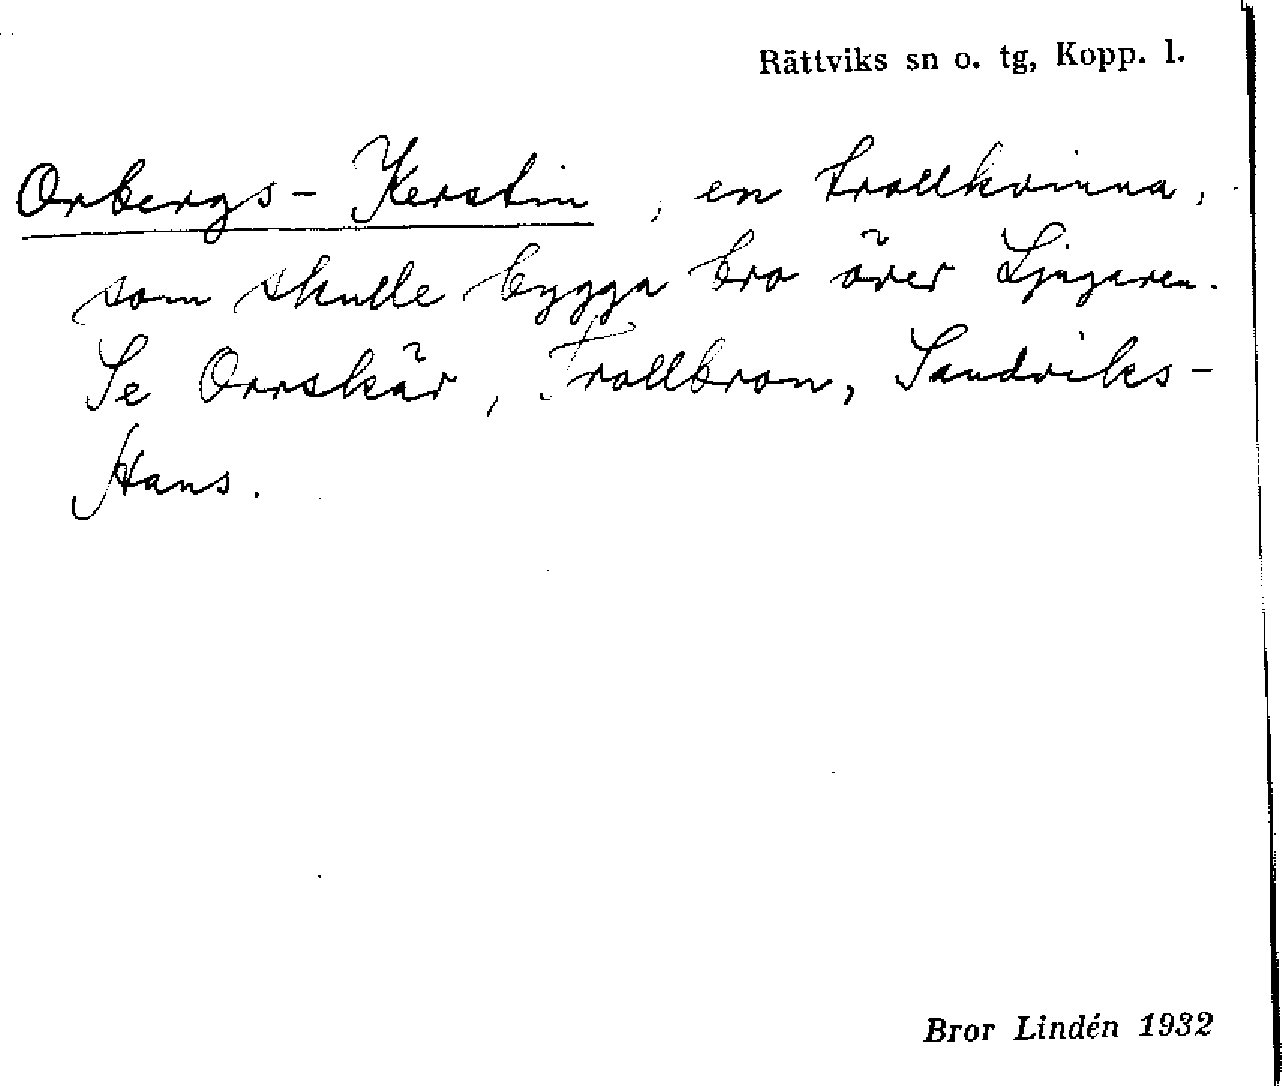 Rättviks sn o. tg, Kopp. l.
Orbergs-Kerstin, en trollkvinna,
som skulle bygga bro över Ljugaren.
Se Orrskär, Trollbron, Sandviks-
Hans.
Bror Lindén 1932